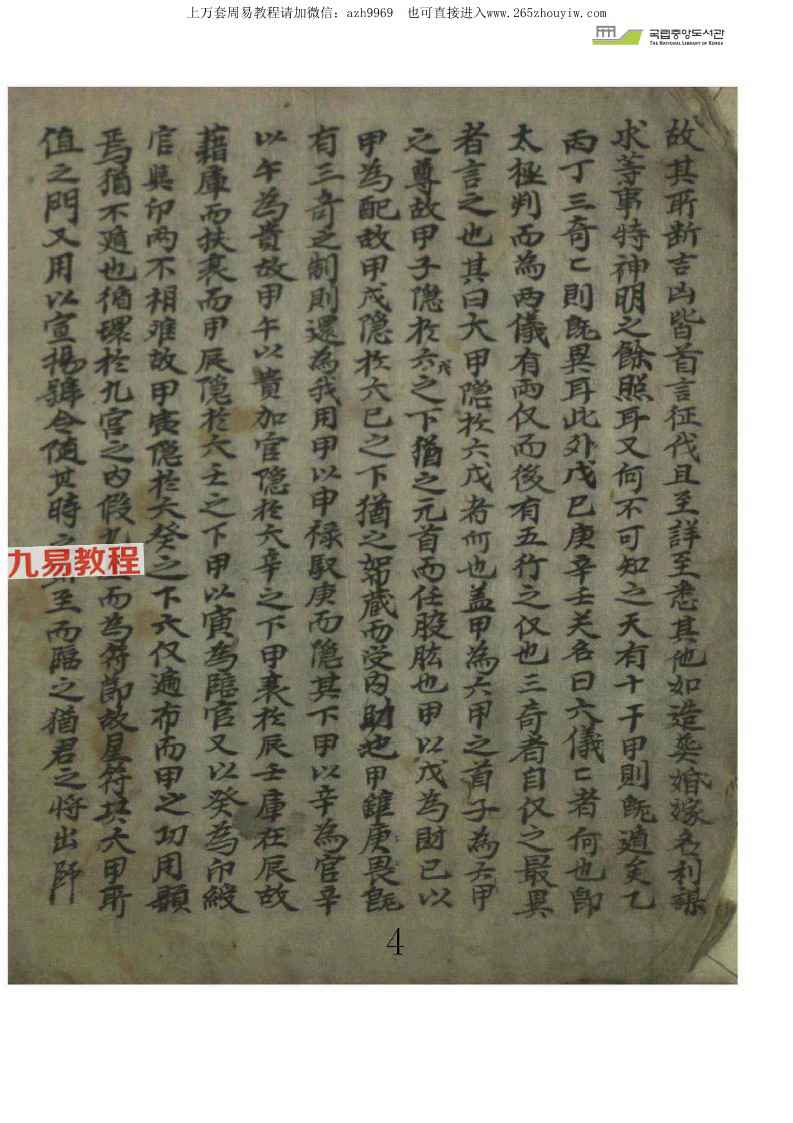 上万套周易教程请加微信：azh9969　也可直接进入www.265zhouyiw.com
국립중앙도서관
THE NATIONAL LIBRARY OF KOREA
故其所断吉凶皆首言征伐且至詳至悉其他如造葬婚嫁名利謀
求等事特神明之餘照耳又何不可知之天有十干甲則既遁矣乙
丙丁三奇已則既異耳此外戊己庚辛壬癸名曰六儀已者何也即
太極判而為两儀有两仪而後有五行之仪也三奇者自仪之最異
者言之也其曰大甲隐於六戊者何也盖甲為六甲之首子為六甲
之尊故甲子隐於六戊之下猶之元首而任股肱也甲以戊為財己以
甲為配故甲戌隐於六己之下猶之帑蔵而受内財也甲雖庚畏既
有三奇之制則還為我用甲以申禄馭庚而隐其下甲以辛為官辛
以午為貴故甲午以貴加官隐於六辛之下甲衰於辰壬庫在辰故
藉庫而扶衰而甲辰隐於六壬之下甲以寅為臨官又以癸為印綬
官與印两不相难故甲寅隐於六癸之下六仪遍布而甲之功用顯
焉猶不遁也循環於九宫之内假九而為符節故星符块六甲所
值之門又用以宣揚號令使其時之至而臨之猶君之将出師
九易教程
4